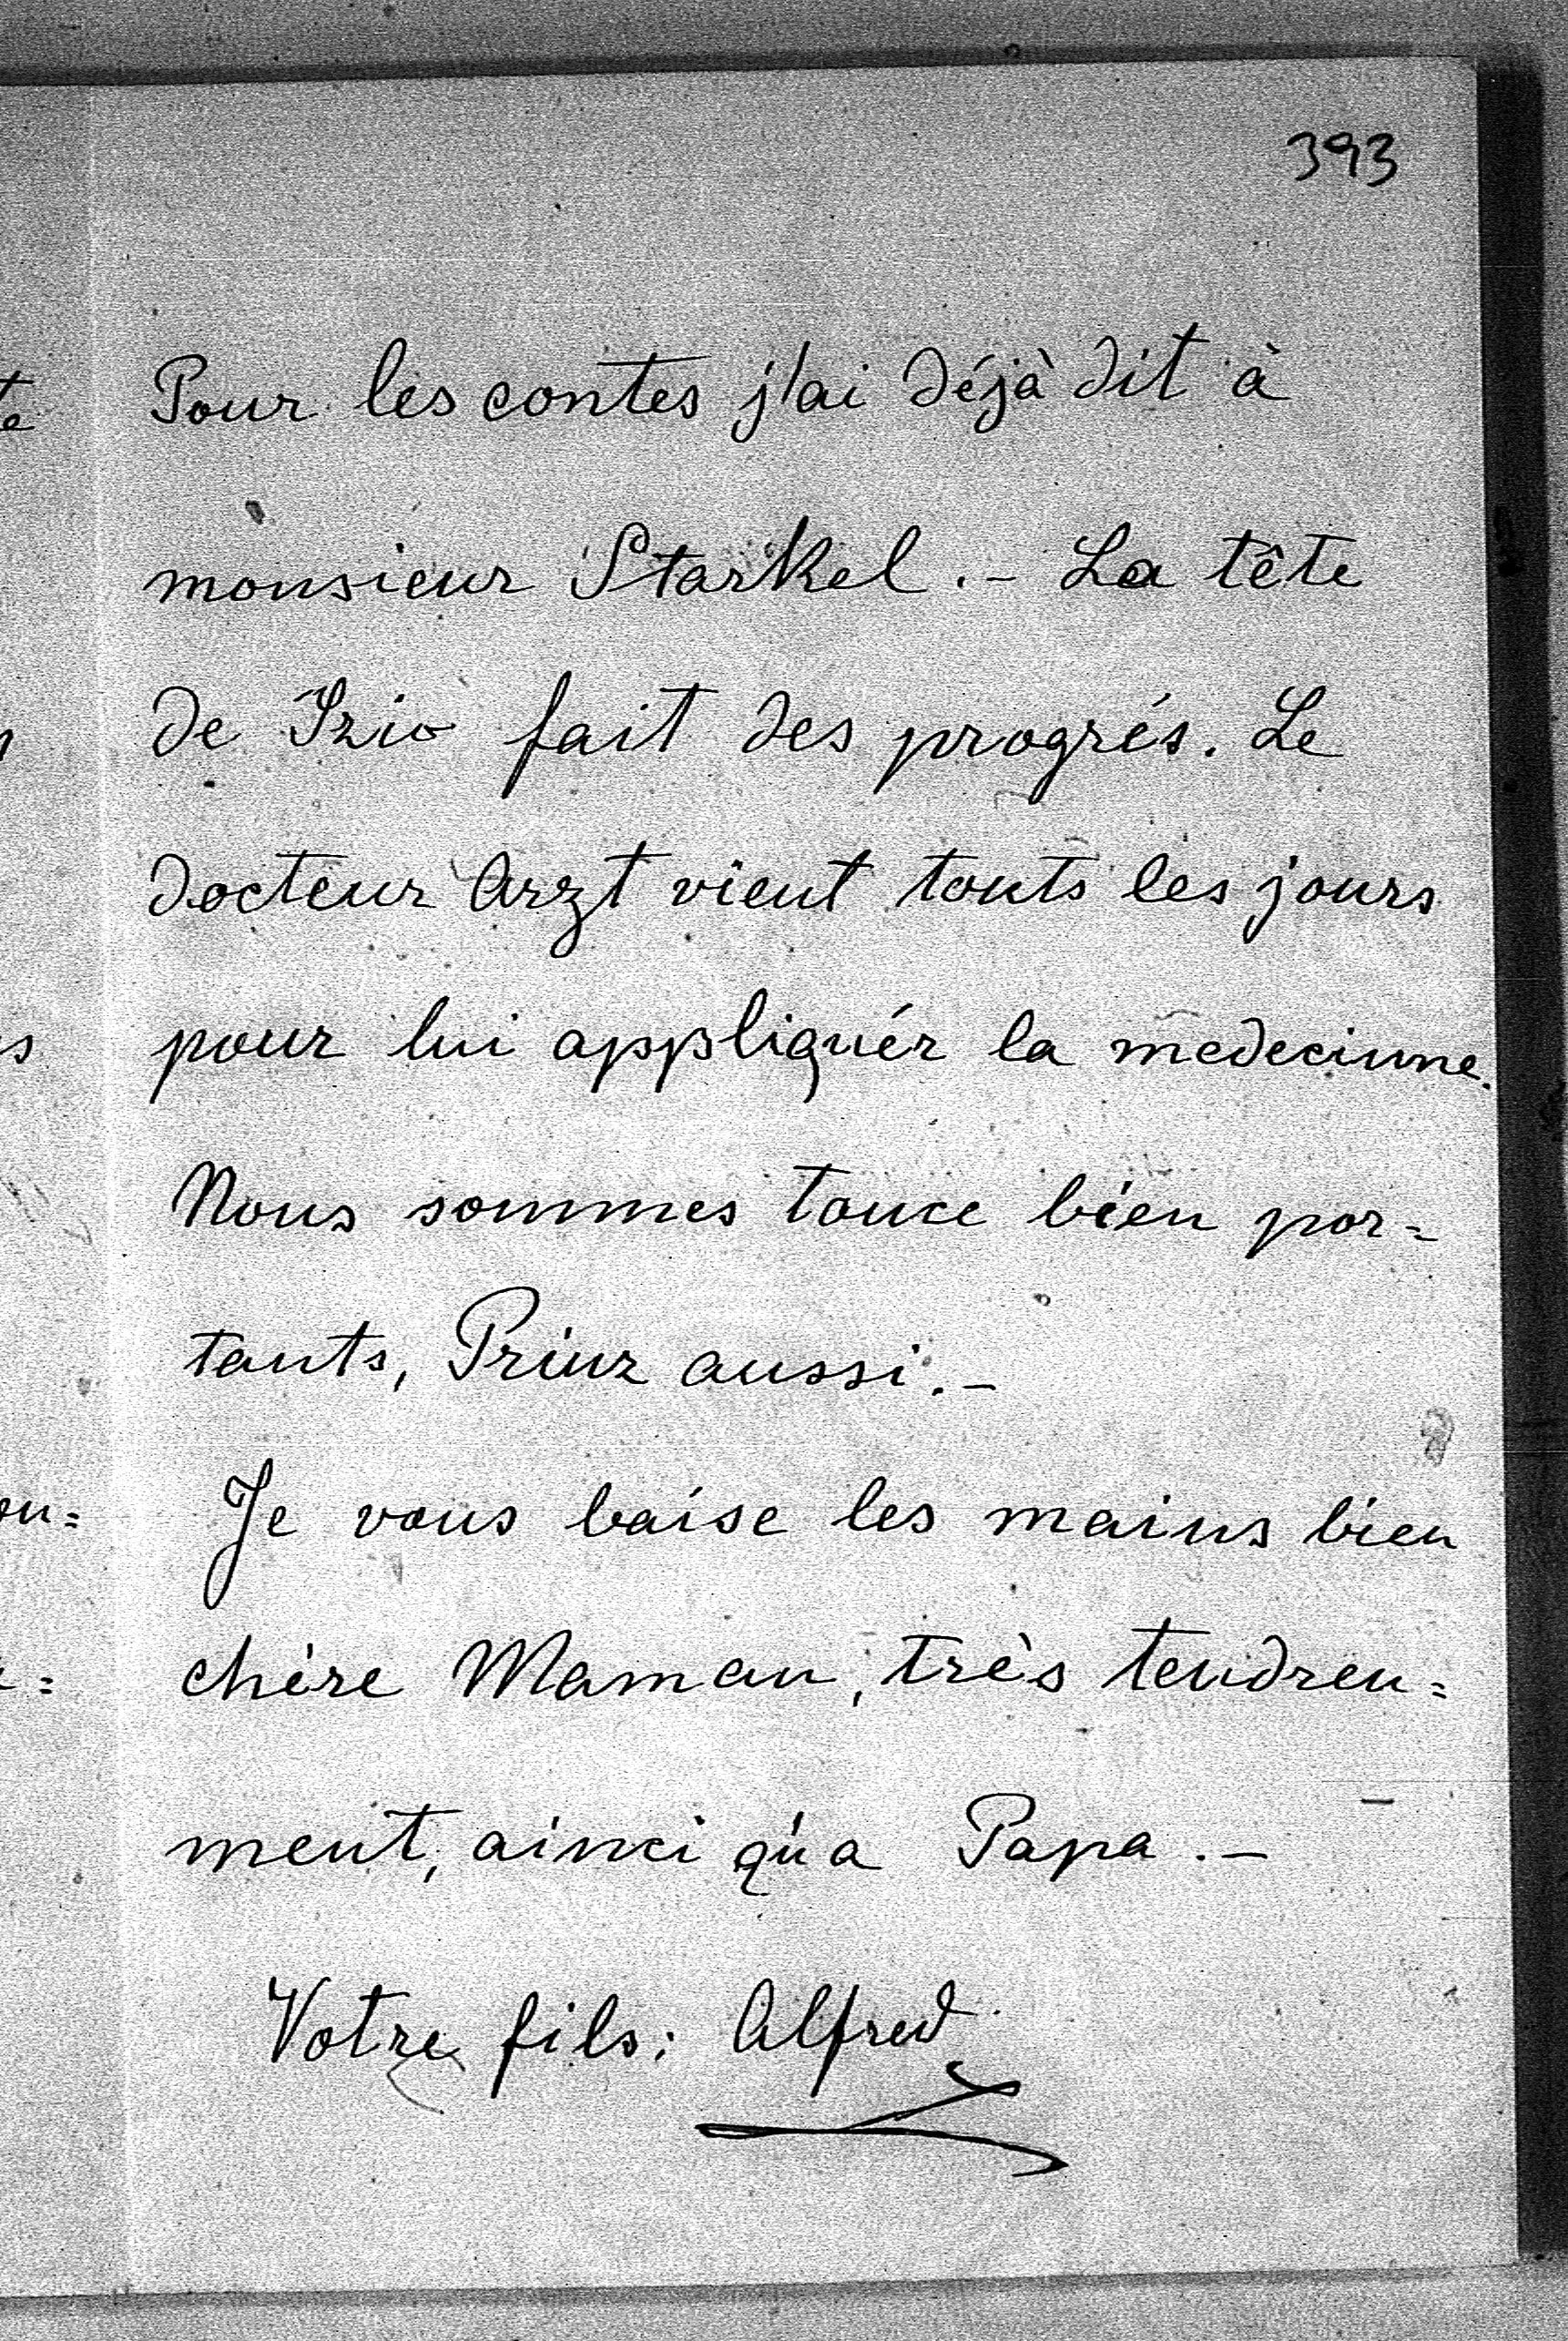 393
Pour les contes j'ai déjà dit à
monsieur Starkel. - La tête
de Izio fait des progrés. Le
docteur Arzt vient touts les jours
pour lui appliquér la medecinne.
Nous sommes touce bien por=
tants, Prinz aussi. -
Je vous baise les mains bien
chère Maman, très tendren=
ment, ainci qu'a Papa. -
Votre fils: Alfred